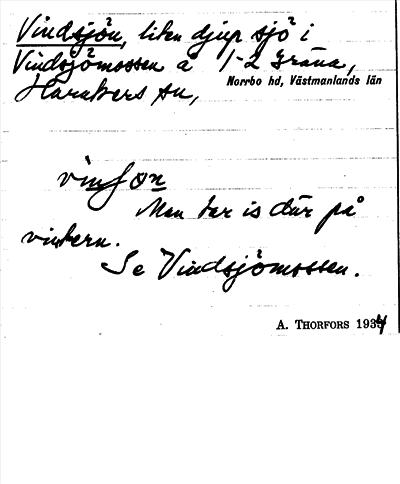 Vindsjön, liten djup sjö i
Vindsjömossen å 1-2 Gräna,
Norrbo hd, Västmanlands län
Harakers sn,
Man tar is där på
vintern.
Se Vindsjömossen.
A. THORFORS 1934